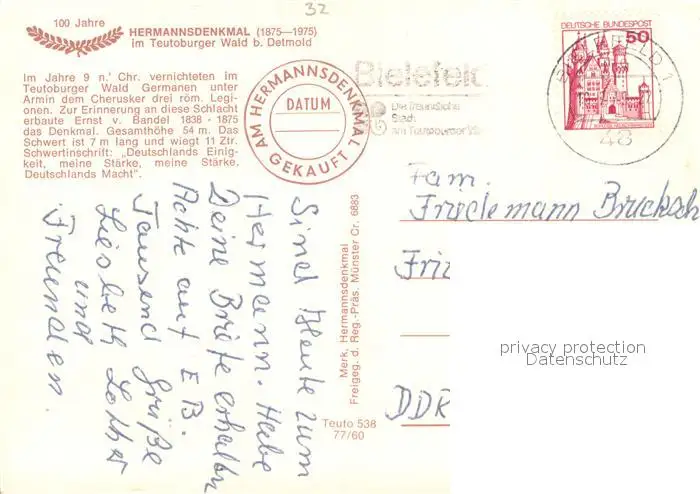 32
100 Jahre
HERMANNSDENKMAL (1875—1975)
im Teutoburger Wald b. Detmold
Im Jahre 9 n.' Chr. vernichteten im
Teutoburger Wald Germanen unter
Armin dem Cherusker drei röm. Legi-
onen. Zur Erinnerung an diese Schlacht
erbaute Ernst v. Bandel 1838 - 1875
das Denkmal. Gesamthöhe 54 m. Das
Schwert ist 7 m lang und wiegt 11 Ztr.
Schwertinschrift: „Deutschlands Einig-
keit, meine Stärke, meine Stärke,
Deutschlands Macht".
AM HERMANNSDENKMAL
DATUM
GEKAUFT
Bielefeld
Die freundliche
Stadt
am Teutoburger W
DEUTSCHE BUNDESPOST
50
BIELEFELD 1
48
Fam.
Friedemann Brucksch
Frie
DDR
Sind Heute zum
Hermann. Habe
Deine Briefe erhalten
Achte auf EB.
Tausend Grüße
Liesbeth Lothar
und
Freunden.
Merk, Hermannsdenkmal
Freigeg. d. Reg.-Präs. Münster Cr. 6883
Teuto 538
77/60
privacy protection
Datenschutz